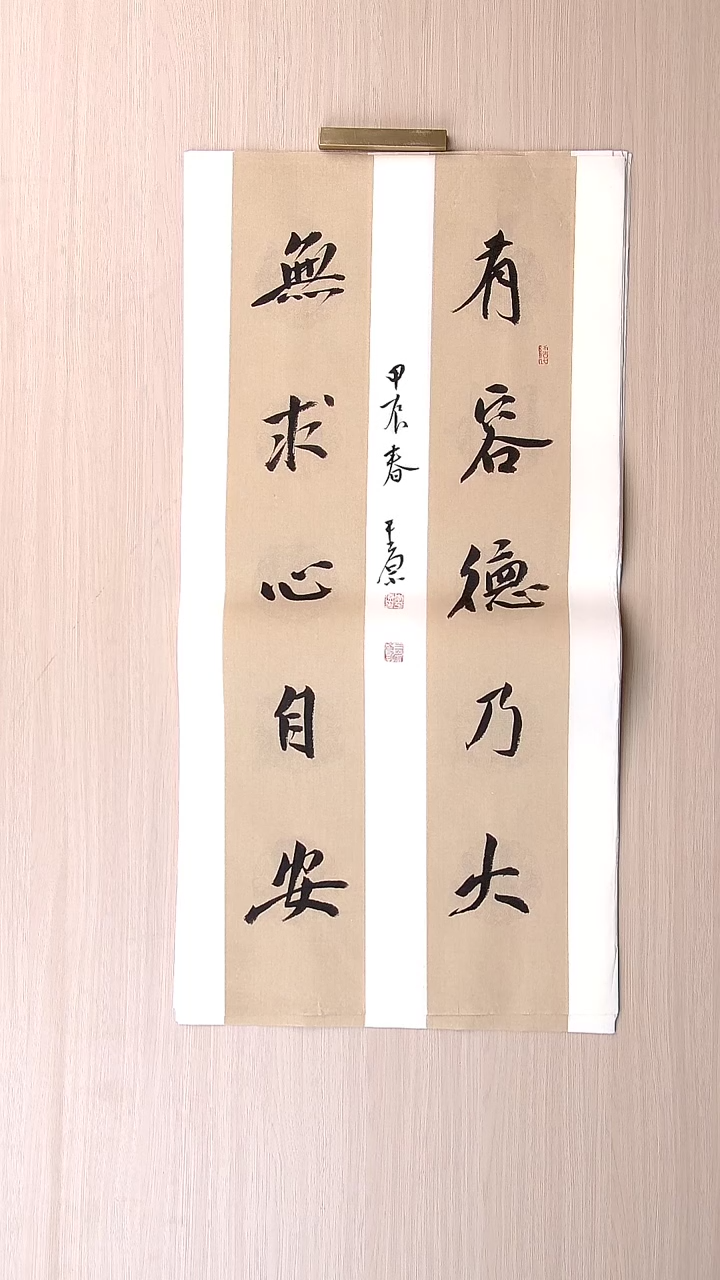 有容德乃大
無求心自安
甲辰春 王原